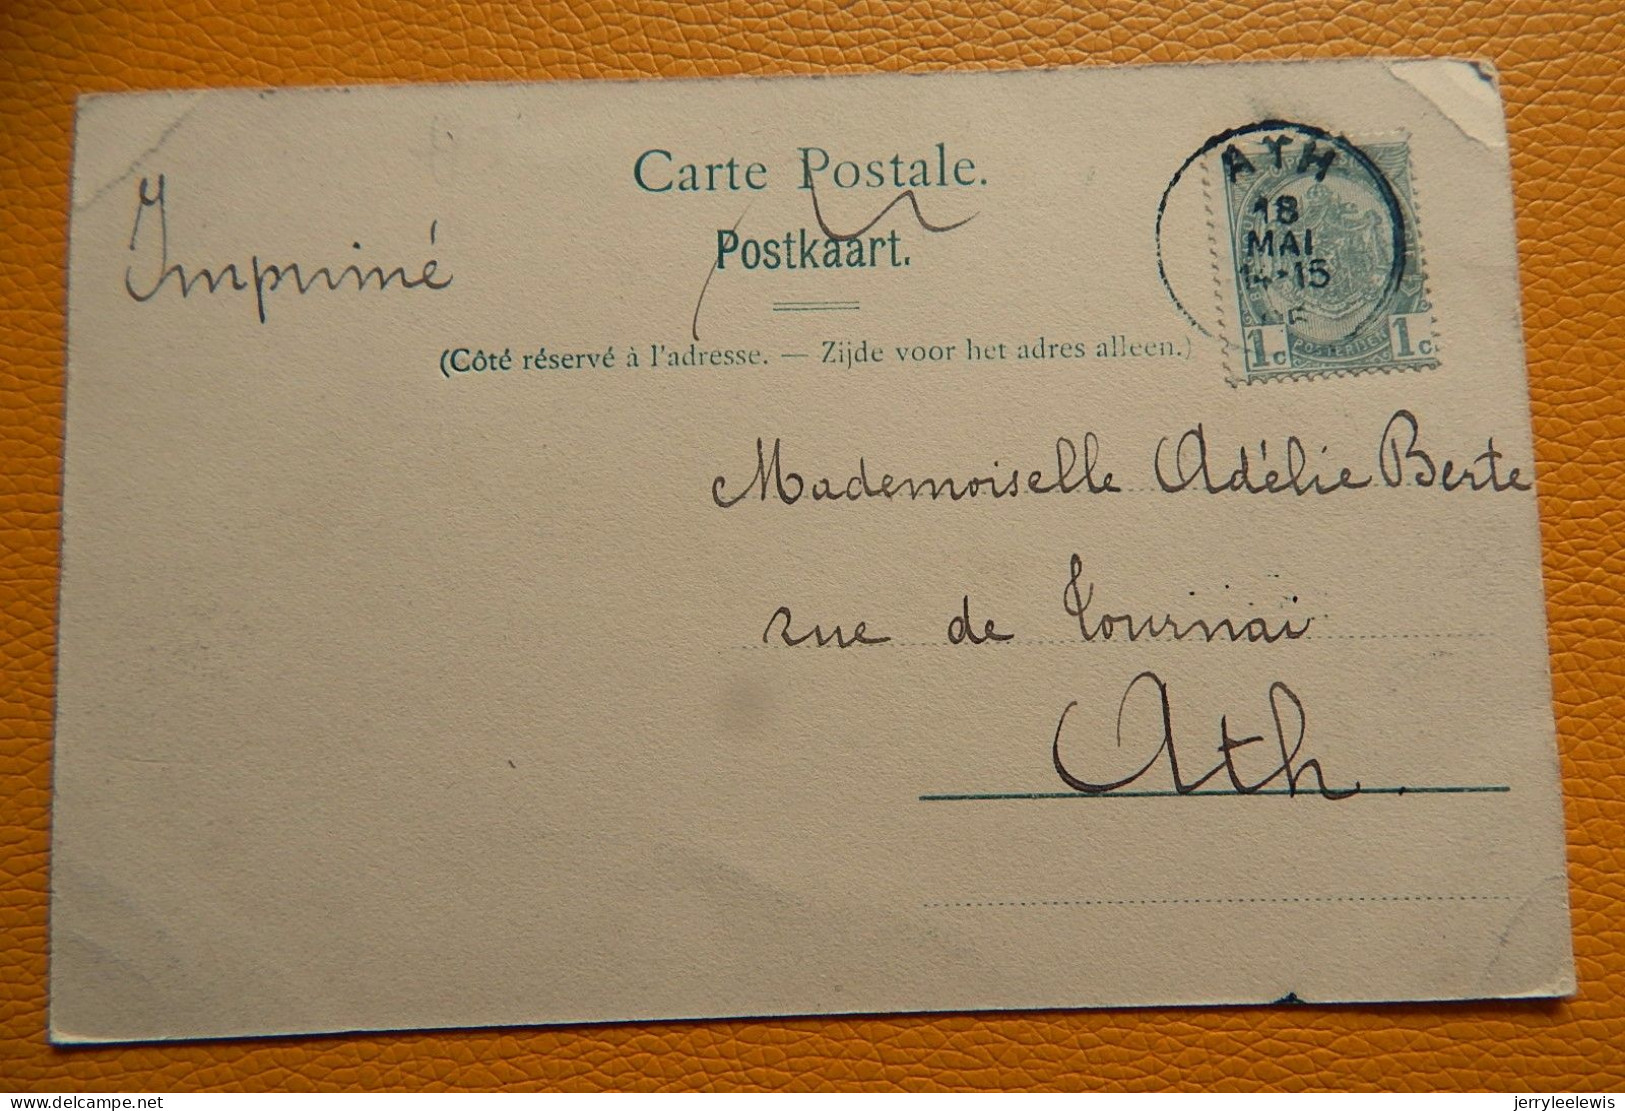 Carte Postale.
Postkaart.
Imprimé
(Côté réservé à l'adresse. — Zijde voor het adres alleen.)
ATH
18
MAI
14-15
1c POSTERIJEN 1c
Mademoiselle Adélie Berte
rue de Tournai
Ath.
delcampe.net
jerryleelewis